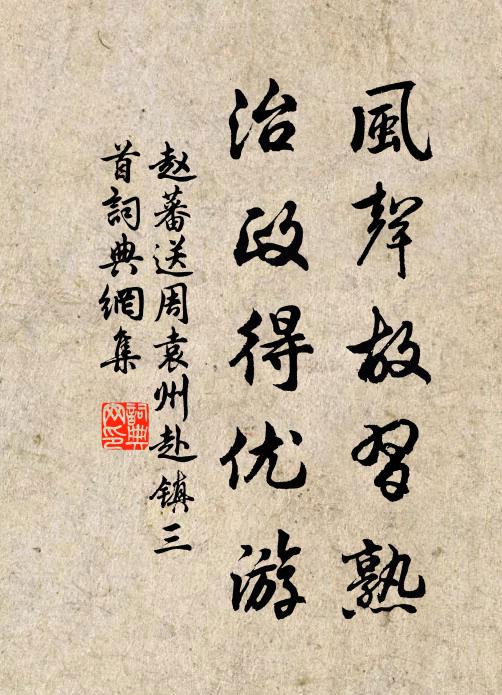 風聲故習熟
治政得优游
赵蕃送周袁州赴镇三
首詞典網集
詞典
网印